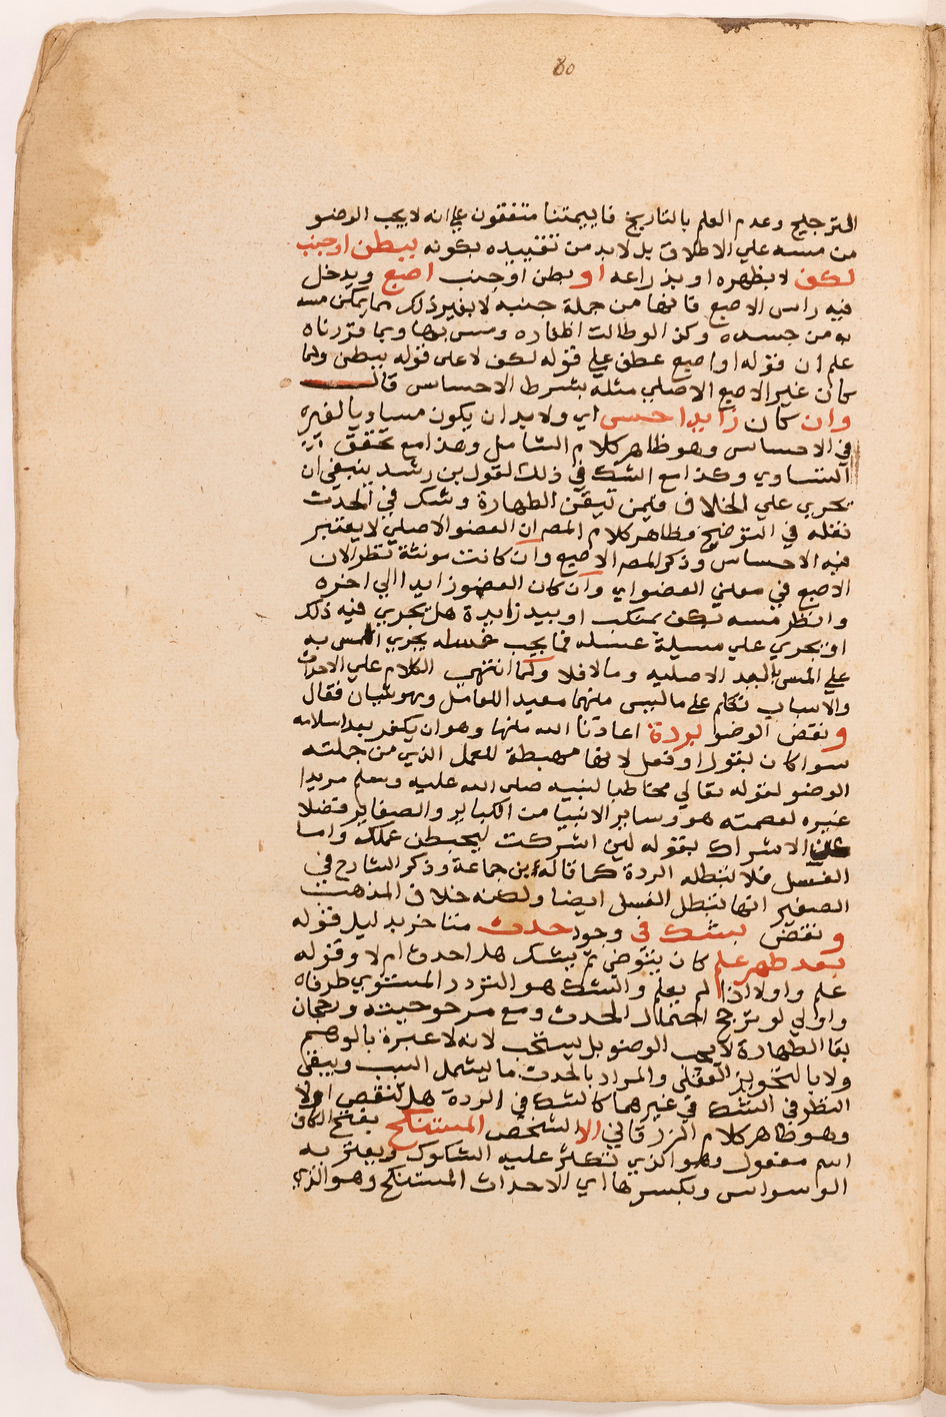 80
الترجيح وعدم العلم بالتاريخ فايمتنا متفقون علي انه لا يجب الوضو
من مسه علي الاطلاق بل لابد من تقييده بكونه ببطن او جنب
لكف لا بظهره او بذراعه او بطن او جنب اصبع ويدخل
فيه راس الاصبع فانها من جملة جنبه لا بغير ذلك مما يمكن مسه
به من جسده وكذا لو طالت اظفاره ومس بها وبما قررناه
علم ان قوله او اصبع عطف علي قوله لكف لا على قوله ببطن ولما
كان غير الاصبع الاصلي مثله بشرط الاحساس قال
وان كان زايدا حس اي ولابد ان يكون مساويا لغيره
في الاحساس وهو ظاهر كلام الشامل وهذا مع تحقق
التساوي وكذا مع الشك في ذلك لقول بن رشد ينبغي ان
يجري علي الخلاف فيمن تيقن الطهارة وشك في الحدث
نقله في التوضيح وظاهر كلام المص ان العضو الاصلي لا يعتبر
فيه الاحساس وذكر المص الاصبع وان كانت مونثة نظرا لان
الاصبع في معني العضو اي وان كان العضو زايدا الي اخره
وانظر مسه بكف بمنكب او بيد زايدة هل يجري فيه ذلك
او يجري علي مسيلة غسله فما يجب غسله يجري المس به
علي المس باليد الاصليه وما لا فلا ولما انتهي الكلام علي الاحداث
والاسباب تكلم على ما ليس منهما معيدا للعامل وهو شيان فقال
و نقض الوضو بردة اعاذنا الله منها وهو ان يكفر بعد اسلامه
سوا كان بقول او فعل لانها محبطة للعمل الذي من جملته
الوضو لقوله تعالي مخاطبا لنبيه صلي الله عليه وسلم مريدا
غيره لعصمته هو وساير الانبيا من الكباير والصغاير فضلا
عن الاشراك بقوله لين اشركت ليحبطن عملك واما
الغسل فلا تبطله الردة كما قاله بن جماعة وذكر الشارح في
الصغير انها تبطل الغسل ايضا ولكنه خلاف المذهب
و نقض بشك في وجود حدث متاخر بدليل قوله
بعد طهر علم كان يتوضي ثم يشك هل احدث ام لا وقوله
علم واولا اذا لم يعلم والشك هو التردد المستوي طرفاه
واولي لو ترجح احتمال الحدث ومع مرجوحيته ورجحان
بقا الطهارة لا يجب الوضو بل يستحب لانه لا عبرة بالوهم
ولا بالتجويز العقلي والمراد بالحدث ما يشمل السبب ويبقي
النظر في الشك في غيرهما كالشك في الردة هل تنقض او لا
وهو ظاهر كلام الزرقاني الا الشخص المستنكح بفتح الكاف
اسم مفعول وهو الذي تكثر عليه الشكوك ويعتريه
الوسواس وبكسرها اي الاحداث المستنكح وهو الذي